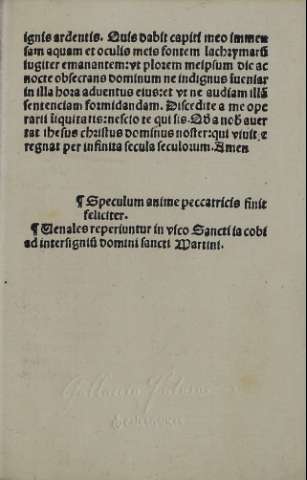 ignis ardentis. Quis dabit capiti meo immen
sam aquam et oculis meis fontem lachrymarū
iugiter emanantem: vt plorem meipsum die ac
nocte obsecrans dominum ne indignus īueniar
in illa hora aduentus eius: et vt ne audiam illā
sentenciam formidandam. Discedite a me ope
rarii īiquitatis: nescio te qui sis. Qđ a nob̄ auer
tat ihesus christus dominus noster: qui viuit ⁊
regnat per infinita secula seculorum. Amen
¶ Speculum anime peccatricis finit
feliciter.
¶ Uenales reperiuntur in vico Sancti ia cobi
ad intersigniū domini sancti Martini.